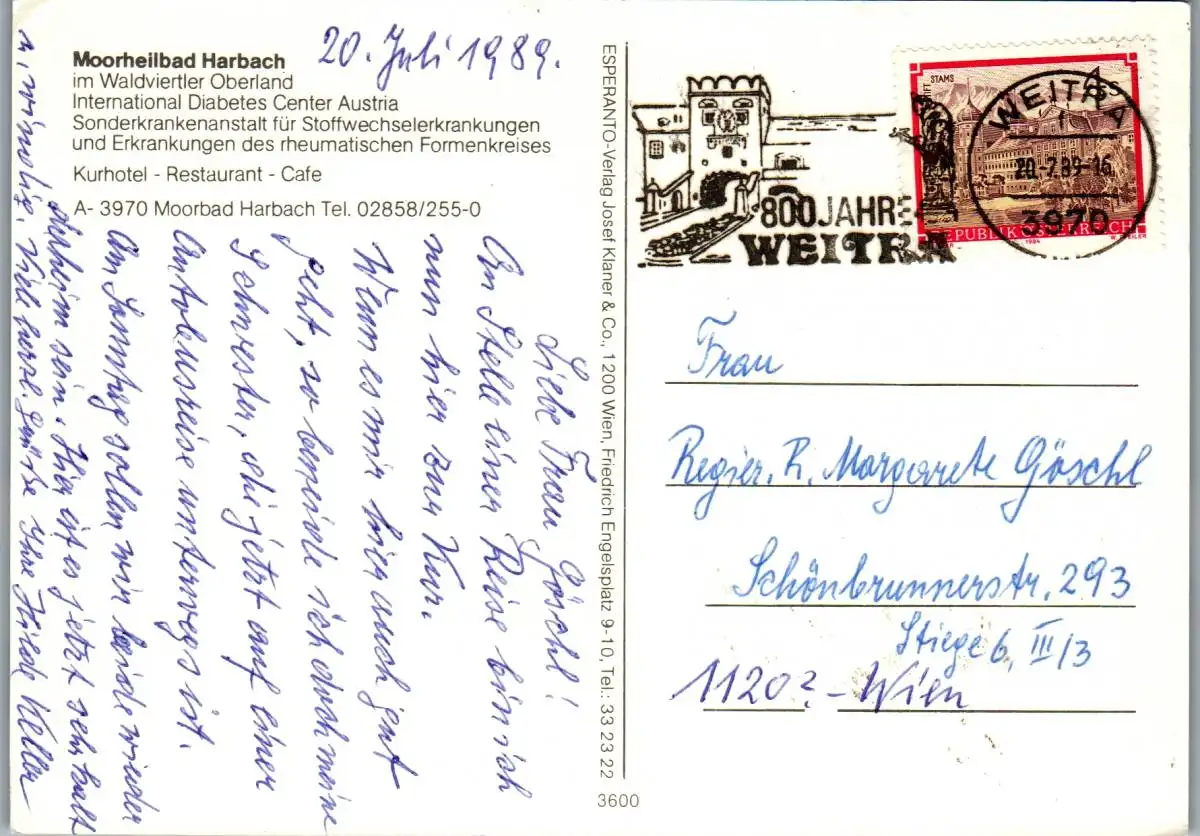 Moorheilbad Harbach
im Waldviertler Oberland
International Diabetes Center Austria
Sonderkrankenanstalt für Stoffwechselerkrankungen
und Erkrankungen des rheumatischen Formenkreises
Kurhotel - Restaurant - Cafe
A- 3970 Moorbad Harbach Tel. 02858/255-0
20. Juli 1989.
Liebe Frau Göschl!
An Stelle einer Reise bin ich
nun hier zur Kur.
Wenn es mir hier auch gut
geht, so beneide ich doch meine
Schwester, die jetzt auf einer
Autobusreise unterwegs ist.
Am Sonntag sollen wir beide wieder
daheim sein. Hier ist es jetzt sehr kalt
u. wolkig. Viele herzl. Grüße Ihre Hilde Keller
ESPERANTO-Verlag Josef Klaner & Co., 1200 Wien, Friedrich Engelsplatz 9-10, Tel.: 33 23 22
3600
800 JAHRE
WEITRA
WEITRA
20.-7.89-16
3970
STIFT STAMS
REPUBLIK ÖSTERREICH
1984
Frau
Regier. R. Margarete Göschl
Schönbrunnerstr. 293
Stiege 6, III/3
1120? - Wien